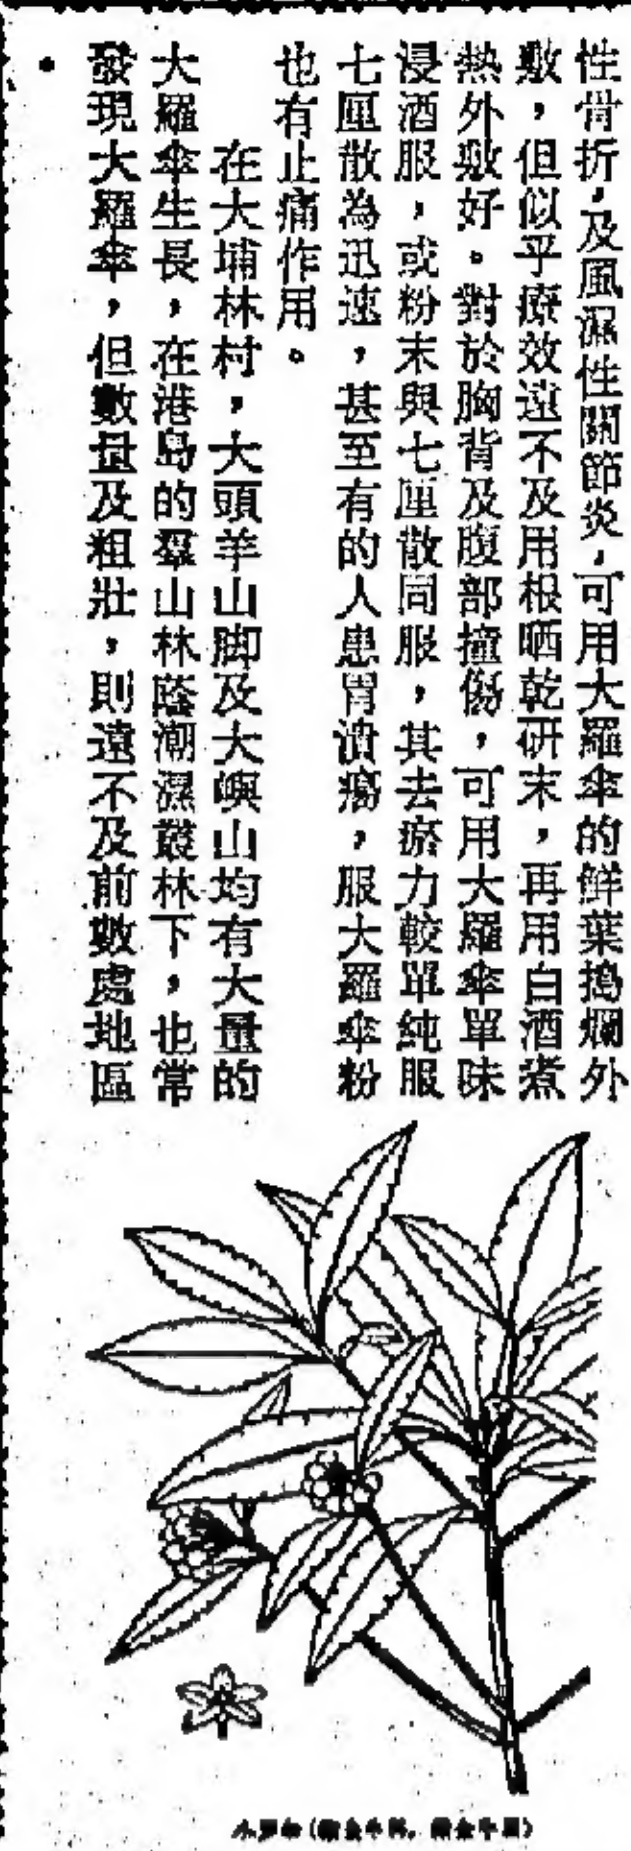 性骨折，及風濕性關節炎，可用大羅傘的鮮葉搗爛外
敷，但似乎療效遠不及用根晒乾研末，再用白酒煮
熱外敷好。對於胸背及腹部撞傷，可用大羅傘單味
浸酒服，或粉末與七厘散同服，其去瘀力較單純服
七厘散為迅速，甚至有的人患胃潰瘍，服大羅傘粉
也有止痛作用。
在大埔林村，大頭羊山脚及大嶼山均有大量的
大羅傘生長，在港島的羣山林蔭潮濕叢林下，也常
發現大羅傘，但數量及粗壯，則遠不及前數處地區
。
小羅傘（紫金牛科，紫金牛屬）